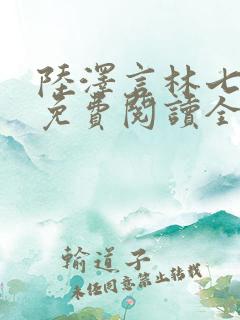 陸澤言林七
免費閱讀全
輸道子
未经同意禁止转载